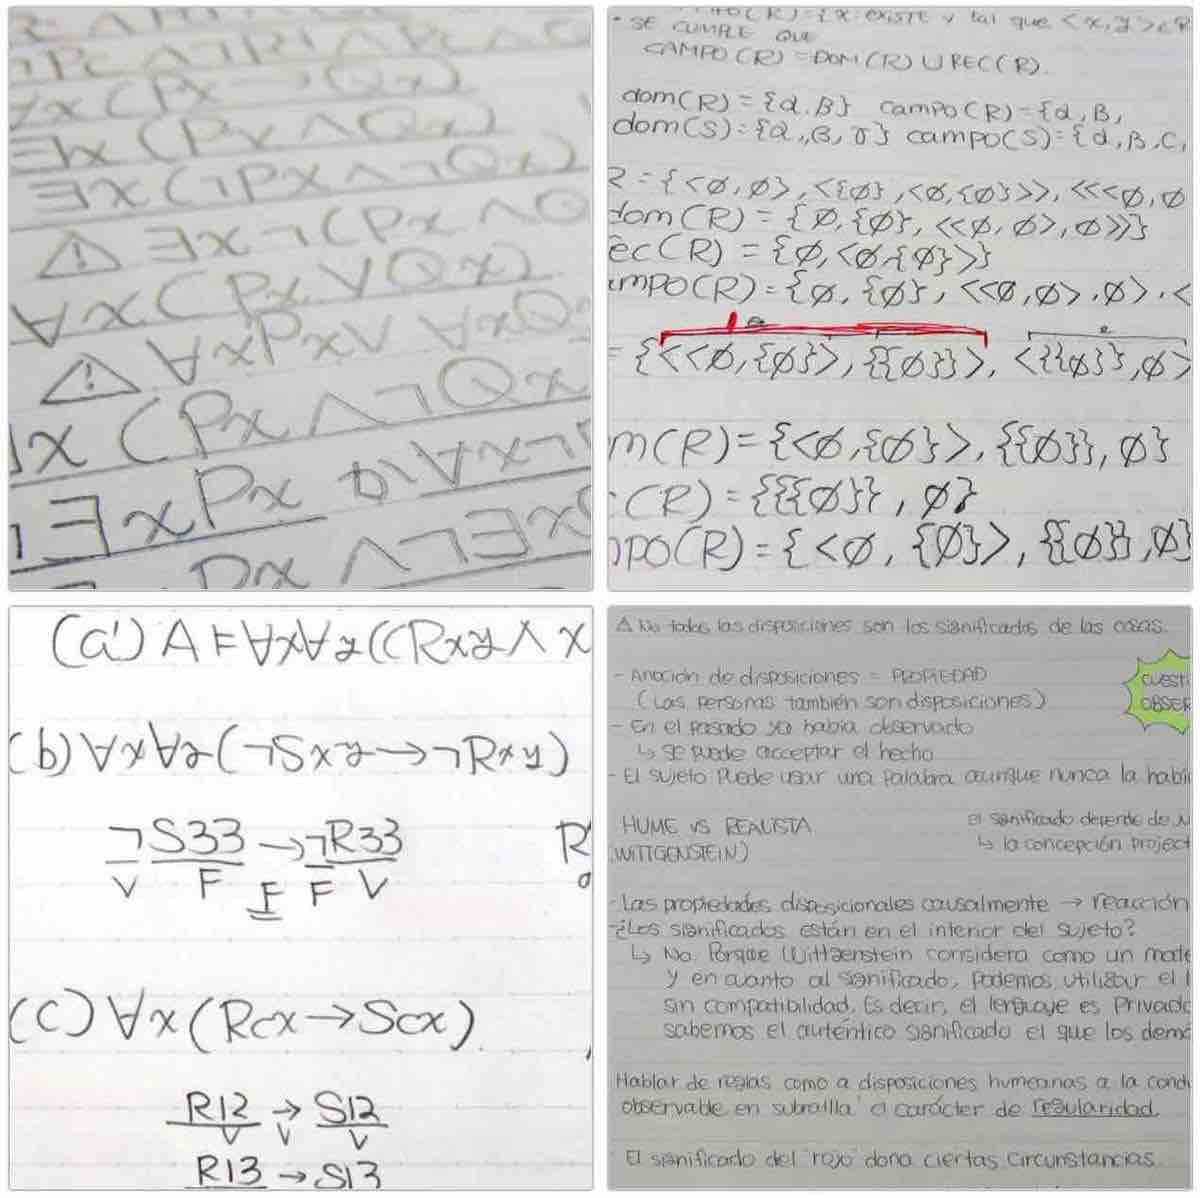 ∀x(Px → Qx)
∃x(Px ∧ Qx)
∃x(¬Px ∧ ¬Qx)
⚠ ∃x¬(Px ∧ Q
∀x(Px ∨ Qx)
⚠ ∀xPx ∨ ∀xQx
x(Px ∧ ¬Qx
∃xPx ¬∀x¬
Px ∧ ¬∃x
(R) = {x: existe y tal que <x, y> ∈ R
• SE CUMPLE QUE
CAMPO(R) = DOM(R) ∪ REC(R).
dom(R) = {α, β} campo(R) = {α, β,
dom(S) = {α, β, γ} campo(S) = {α, β, C,
R = {<∅, ∅>, <{∅}, <∅, {∅}>>, <<<∅, ∅
dom(R) = {∅, {∅}, <<∅, ∅>, ∅>>}
ec(R) = {∅, <∅, {∅}>}
mpo(R) = {∅, {∅}, <<∅, ∅>, ∅>, <
= {<<∅, {∅}>, {{∅}}>, <{{∅}}, ∅>
m(R) = {<∅, {∅}>, {{∅}}, ∅}
(R) = {{{∅}}, ∅}
mpo(R) = {<∅, {∅}>, {{∅}}, ∅}
(a') A ⊨ ∀x∀y((Rxy ∧ x
(b) ∀x∀y(¬Sxy → ¬Rxy)
¬S33 → ¬R33
V F F F V
R
(c) ∀x(Rcx → Scx)
R12 → S12
V V V
R13 → S13
⚠ No todas las disposiciones son los significados de las cosas.
- Anoción de disposiciones = PROPIEDAD
(Las personas también son disposiciones)
CUESTI
OBSER
- En el pasado ya había observado
↳ se puede acceptar el hecho
- El sujeto puede usar una palabra aunque nunca la habí
HUME VS REALISTA
WITTGENSTEIN)
el significado depende de
↳ la concepción project
- Las propiedades disposicionales causalmente → reacción
¿Los significados están en el interior del sujeto?
↳ No. Porque Wittgenstein considera como un mate
y en cuanto al significado, podemos utilizar el l
sin compatibilidad. Es decir, el lenguaje es privado
sabemos el autentico significado el que los demá
Hablar de reglas como a disposiciones humeanas a la cond
observable en subralla el carácter de regularidad.
El significado del "rojo" dona ciertas circunstancias.